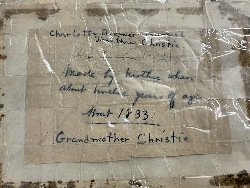 Charlotte
Christie
Made by mother when
about twelve years of age
About 1833.
Grandmother Christie